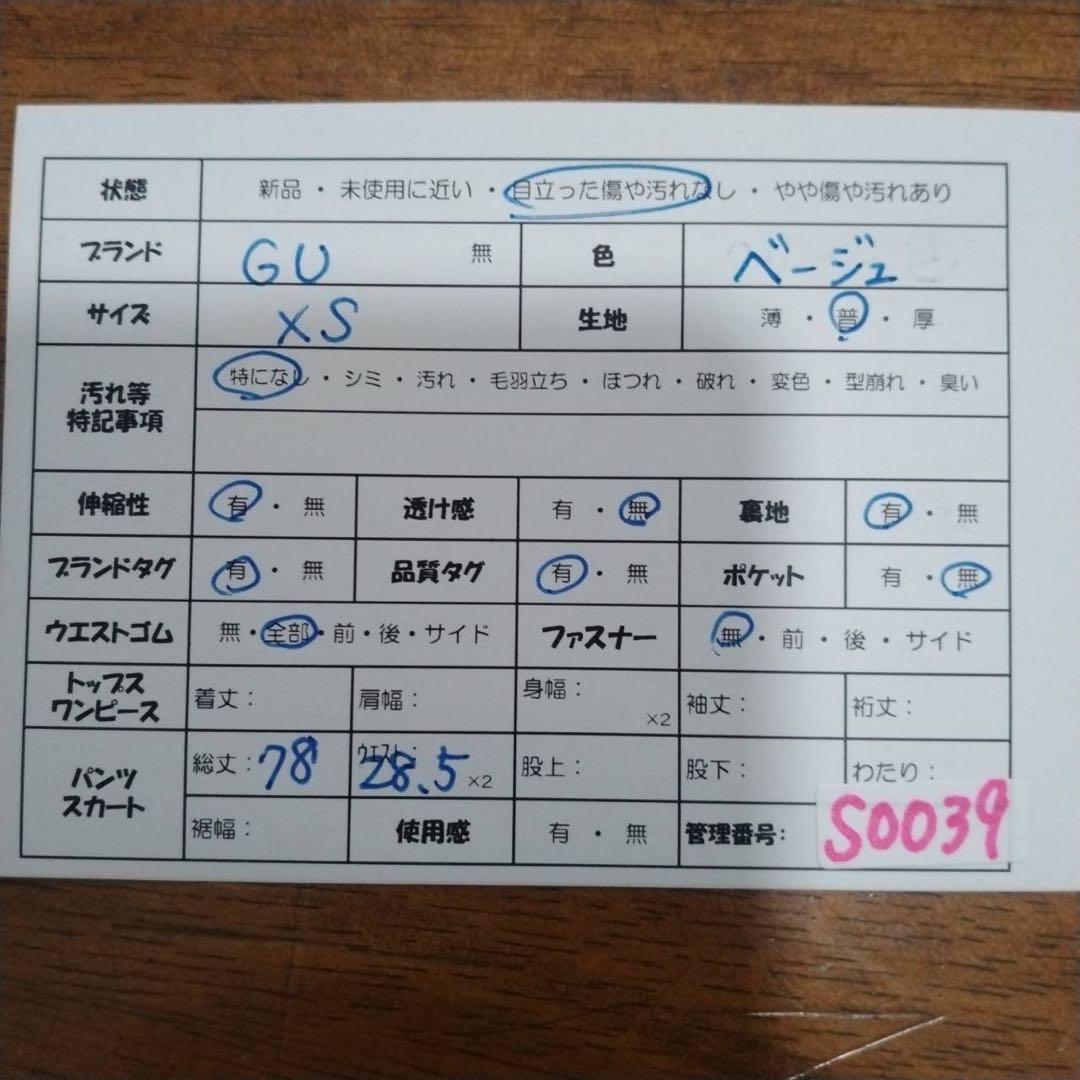 状態 新品・未使用に近い・目立った傷や汚れなし・やや傷や汚れあり
ブランド GU 無 色 ベージュ
サイズ XS 生地 薄・普・厚
汚れ等 特になし・シミ・汚れ・毛羽立ち・ほつれ・破れ・変色・型崩れ・臭い
特記事項
伸縮性 有・無 透け感 有・無 裏地 有・無
ブランドタグ 有・無 品質タグ 有・無 ポケット 有・無
ウエストゴム 無・全部・前・後・サイド ファスナー 無・前・後・サイド
トップス
ワンピース 着丈: 肩幅: 身幅: ×2 袖丈: 裄丈:
パンツ
スカート 総丈:78 ウエスト:28.5 ×2 股上: 股下: わたり:
裾幅: 使用感 有・無 管理番号: S0039